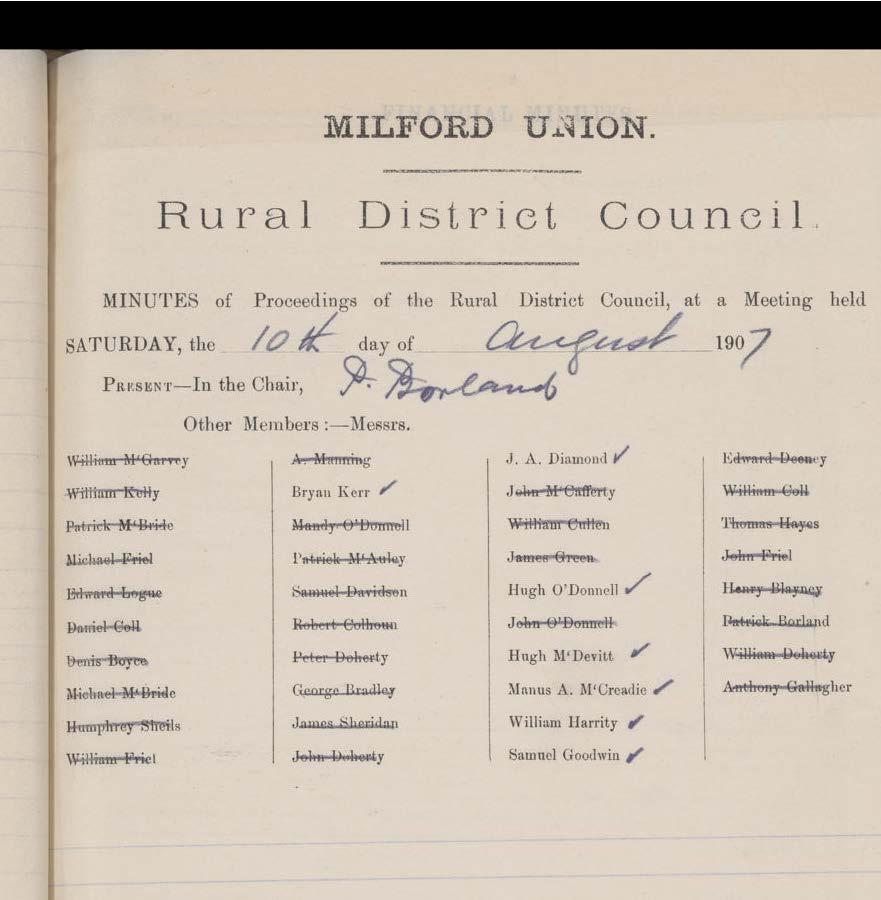 MILFORD UNION.
Rural District Council.
MINUTES of Proceedings of the Rural District Council, at a Meeting held
SATURDAY, the 10th day of August 1907
PRESENT—In the Chair, P. Borland
Other Members :—Messrs.
William M‘Garvey
William Kelly
Patrick M‘Bride
Michael Friel
Edward Logue
Daniel Coll
Denis Boyce
Michael M‘Bride
Humphrey Sheils
William Friel
A. Manning
Bryan Kerr ✓
Mandy O’Donnell
Patrick M‘Auley
Samuel Davidson
Robert Colhoun
Peter Doherty
George Bradley
James Sheridan
John Doherty
J. A. Diamond ✓
John M‘Cafferty
William Cullen
James Green
Hugh O’Donnell ✓
John O’Donnell
Hugh M‘Devitt ✓
Manus A. M‘Creadie ✓
William Harrity ✓
Samuel Goodwin ✓
Edward Deeney
William Coll
Thomas Hayes
John Friel
Henry Blayney
Patrick Borland
William Doherty
Anthony Gallagher